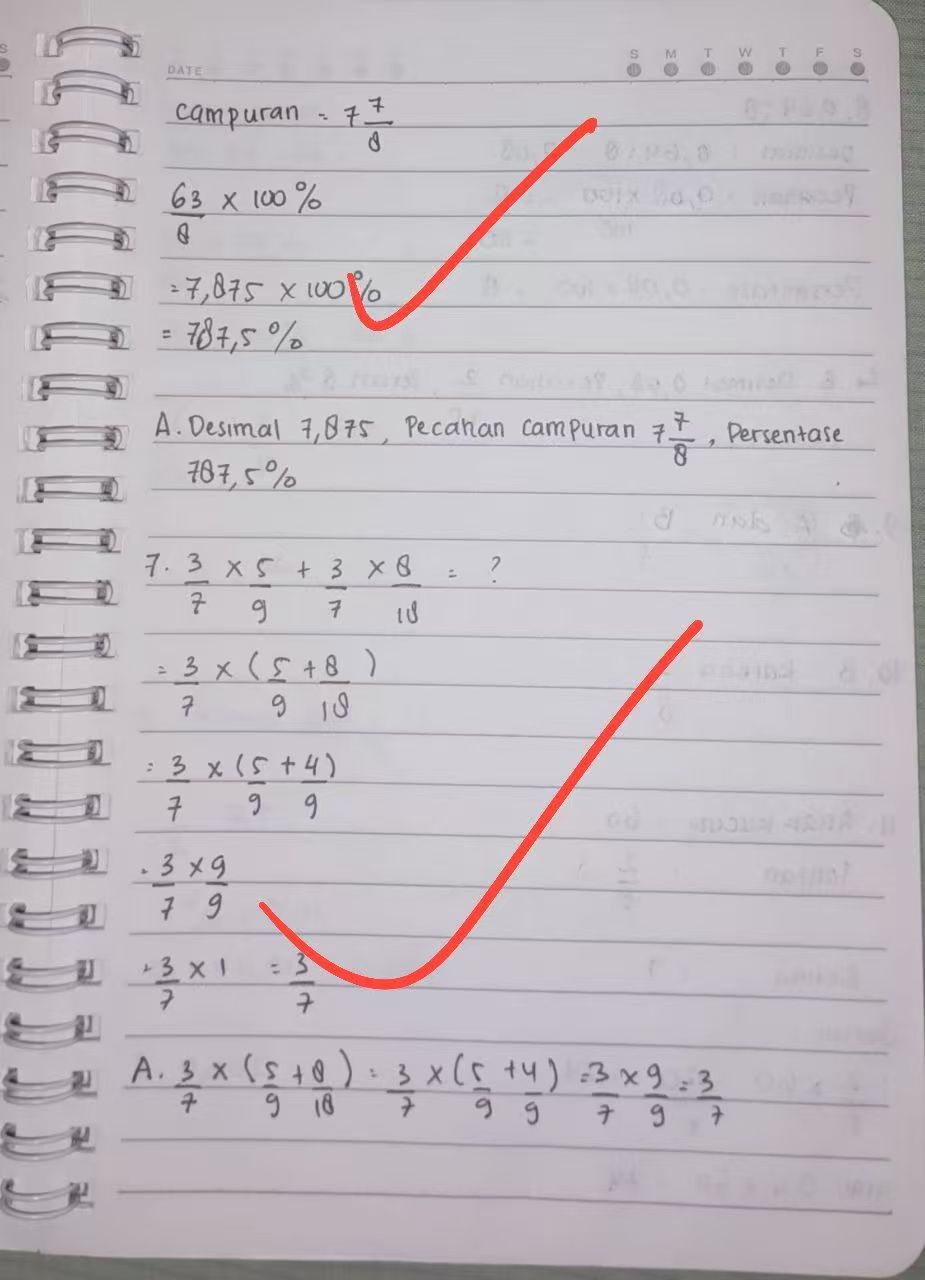 DATE
S M T W T F S
campuran = 7 7/8
63/8 × 100%
= 7,875 × 100%
= 787,5%
A. Desimal 7,875, Pecahan campuran 7 7/8, Persentase
787,5%
7. 3/7 × 5/9 + 3/7 × 8/18 = ?
= 3/7 × (5/9 + 8/18)
= 3/7 × (5/9 + 4/9)
= 3/7 × 9/9
= 3/7 × 1 = 3/7
A. 3/7 × (5/9 + 8/18) = 3/7 × (5/9 + 4/9) = 3/7 × 9/9 = 3/7